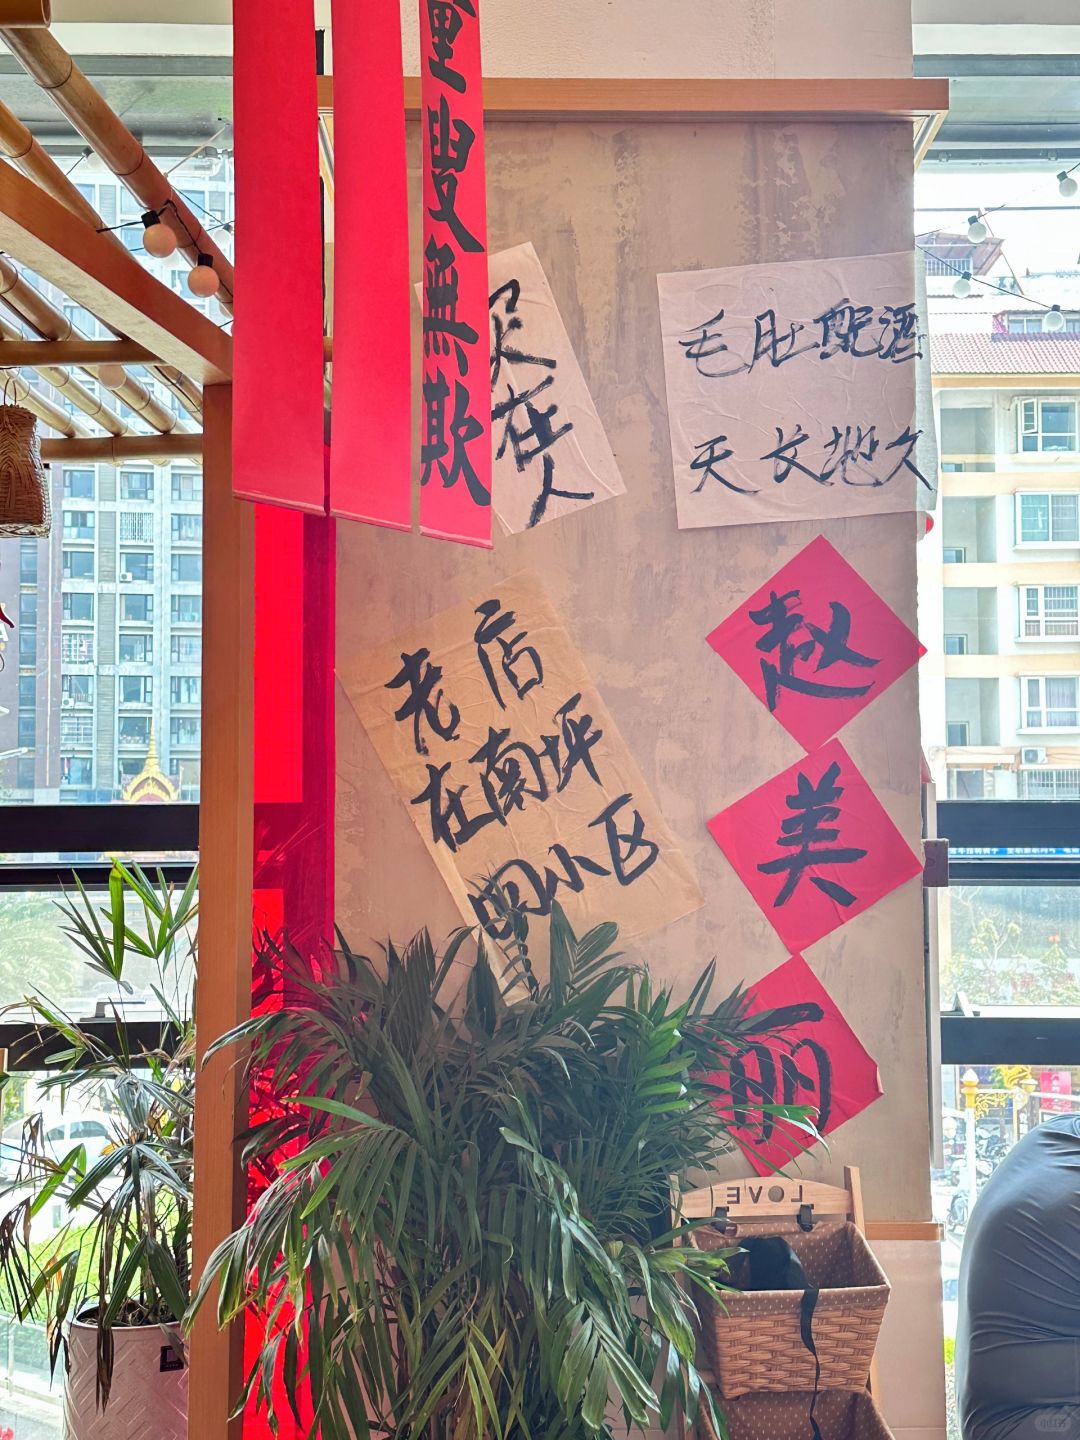 童叟無欺
在人
毛肚配酒
天长地久
老店
在南坪
小区
赵
美
丽
LOVE